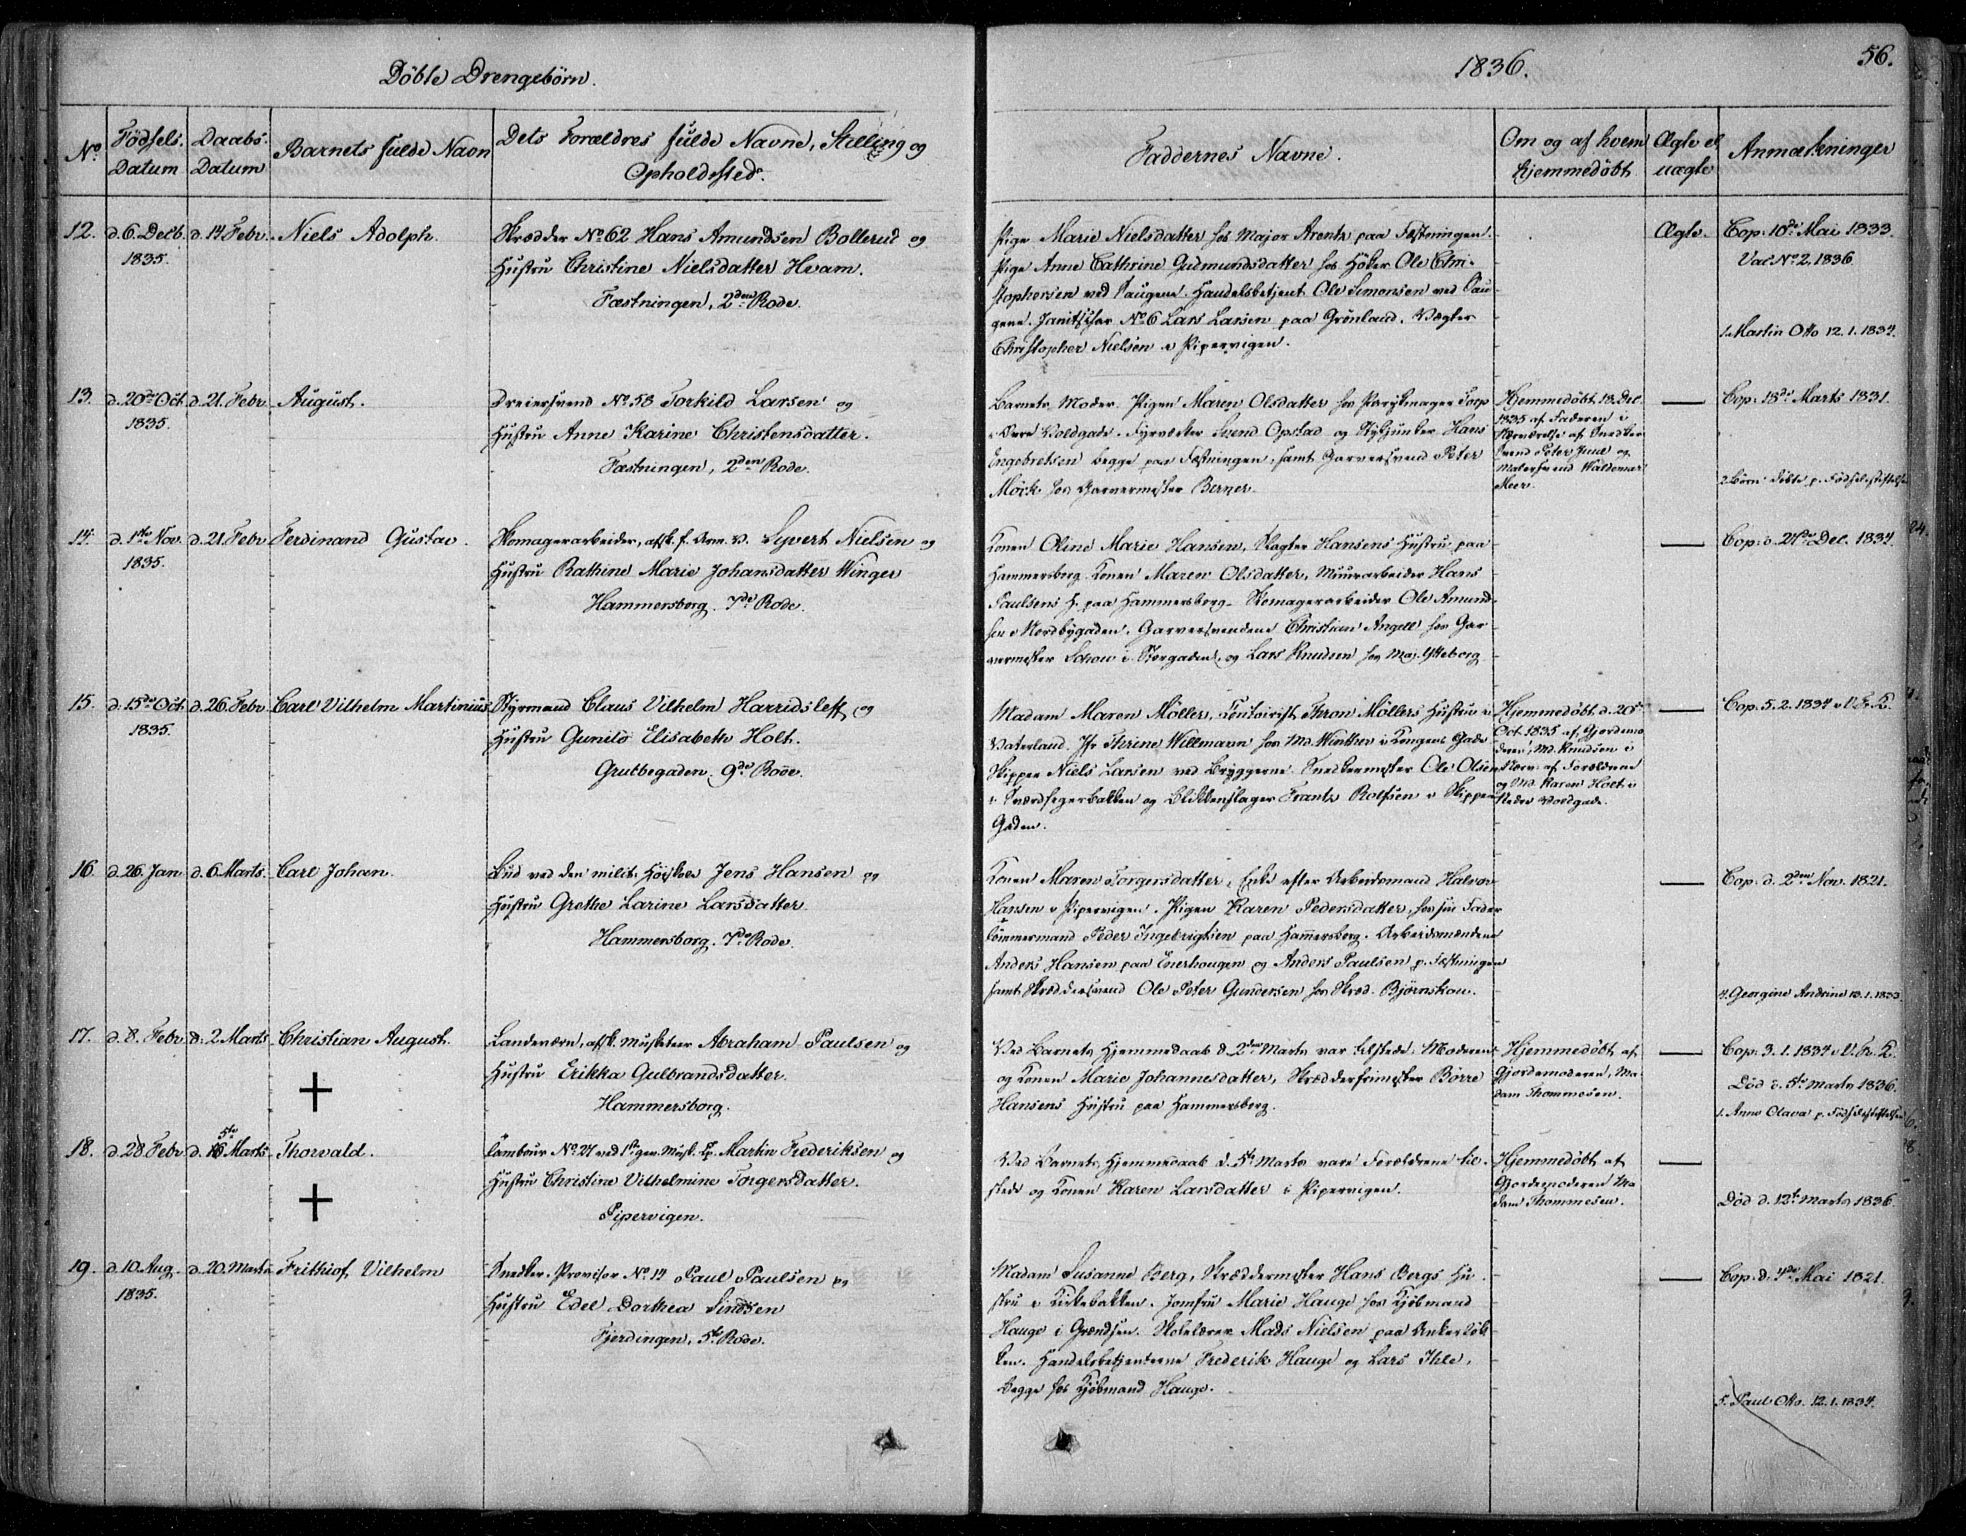 Døbte Drengebørn.
1836.
56.
No.
Fødsels Datum
Daabs Datum
Barnets fulde Navn
Dets Forældres fulde Navne, Stilling og
Opholdssted.
Faddernes Navne.
Om og af hvem
hjemmedøbt
Ægte el.
uægte
Anmærkninger
12. d. 6. Decb. d. 14 Febr. Niels Adolph.
1835.
Skrædder No 62 Hans Amundsen Bollerud og
Hustru Christine Nielsdatter Hvam.
Fæstningen, 2den Rode.
Pige Marie Nielsdatter hos Major Arentz paa Fæstningen.
Pige Anne Cathrine Gudmundsdatter hos Höker Ole Chri-
stophersen ved Saugene. Handelsbetjent Ole Simonsen ved Sau-
gene. Janitschar No 6 Lars Larsen paa Grönland. Vægter
Christopher Nielsen i Pipervigen.
Ægte.
Cop. 10de Mai 1833.
Vac No 2. 1836.
1. Martin Otto 12. 1. 1834.
13. d. 20de Oct. d. 21. Febr. August.
1835.
Dreiersvend No 58 Torkild Larsen og
Hustru Anne Karine Christensdatter.
Fæstningen, 2den Rode.
Barnets Moder. Pigen Maren Olsdatter hos Parykmager Torp
i Övre Voldgade. Fyrværker Svend Opstad og Stykjunker Hans
Engebretsen begge paa Fæstningen, samt Garversvend Peter
Möck hos Garvermester Berner.
Hjemmedøbt 18. Dec.
1835 af Faderen i
Nærværelse af Snedker-
svend Peter Juul og
Malersvend Waldemar
Meer.
Cop. 18de Marts 1831.
2 Börn födte p. Födselsstiftelsen
14. d. 1ste Nov. d. 21. Febr. Ferdinand Gustav.
1835.
Skomagerarbeider, afsk. f. Arm. v. Syvert Nielsen og
Hustru Kathine Marie Johansdatter Winger
Hammersborg. 7de Rode.
Konen Oline Marie Hansen, Slagter Hansens Hustru paa
Hammersborg. Konen Maren Olsdatter, Muurarbeider Hans
Paulsens H. paa Hammersborg. Skomagerarbeider Ole Amund-
sen i Nordbygaden. Garversvendene Christian Angell hos Gar-
vermester Schou i Storgaden, og Lars Knudsen hos Maj. Ytteborg.
Cop. d. 27de Dec. 1834
15. d. 15de Oct. d. 26. Febr. Carl Vilhelm Martinius
1835.
Styrmand Claus Vilhelm Harridsleff og
Hustru Gunild Elisabeth Holt.
Grubbegaden. 9de Rode.
Madam Maren Möller, Contoirist Thron Möllers Hustru i
Vaterland. Jfr Thrine Willmann hos Md. Winther i Kongens Gade
Skipper Niels Larsen ved Bryggerne. Snedkermester Ole Olsen
i Sværdfegerbakken og Blikkenslager Frantz Rolfsen i Skipper
Gaden.
Hjemmedøbt d. 20de
Oct. 1835 af Gjordemo-
deren, Md. Knudsen i
Nærv. af Forældrene
og Md. Karen Holt i
Nedre Voldgade.
Cop. 5. 2. 1834 i V. Fr. K.
16. d. 26. Jan. d. 6. Marts. Carl Johan.
Bud ved den milit. Höiskole Jens Hansen og
Hustru Grethe Larine Larsdatter.
Hammersborg. 7de Rode.
Konen Maren Torgersdatter, Enke efter Arbeidsmand Halvor
Hansen i Pipervigen. Pigen Karen Pedersdatter, hos sin Fader
Tömmermand Peder Ingebrigtsen paa Hammersborg. Arbeidsmændene
Anders Hansen paa Enerhougen og Anders Paulsen p. Fæstningen
samt Skræddersvend Ole Peter Gundersen hos Skræd. Björnskou.
Cop. d. 2den Nov. 1821.
4. Georgine Andrine 10. 1. 1833
17. d. 8. Febr. d. 2. Marts Christian August.
Landeværn, afsk. Musketeer Abraham Paulsen og
Hustru Erikka Gulbrandsdatter.
Hammersborg.
Ved Barnets Hjemmedaab d. 2den Marts var tilstede: Moderen
og Konen Marie Johannesdatter, Skrædderfrimester Börre
Hansens Hustru paa Hammersberg.
Hjemmedøbt af
Gjordemoderen, Ma-
dam Thommesen.
Cop. 3. 1. 1834 i V. Fr. K.
Död d. 5te Marts 1836.
1. Anne Olava p. Födselsstiftelsen
18. d. 28 Febr. d. 5te Marts Thorvald.
Tambour No 27 ved 1ste gev. Musk. Cp. Martin Frederiksen og
Hustru Christine Vilhelmine Torgersdatter.
Pipervigen.
Ved Barnets Hjemmedaab d. 5te Marts vare Forældrene til-
stede og Konen Karen Larsdatter i Pipervigen.
Hjemmedøbt af
Gjordemoderen Ma-
dam Thommesen.
Död d. 12te Marts 1836.
19. d. 10. Aug. d. 20. Marts Frithiof Vilhelm
1835.
Snedker. Provisor No 14 Paul Paulsen og
Hustru Edel Dorthea Sindsen
Fjerdingen, 5te Rode.
Madam Susanne Berg, Skræddermester Hans Bergs Hu-
stru i Kirkebakken. Jomfru Marie Hauge hos Kjöbmand
Hauge i Grændsen. Skolelærer Mads Nielsen paa Ankerløk-
ken. Handelsbetjenterne Frederik Hauge og Lars Ihle,
begge hos Kjöbmand Hauge.
Cop. d. 4de Mai 1821.
5. Paul Otto. 12. 1. 1834.